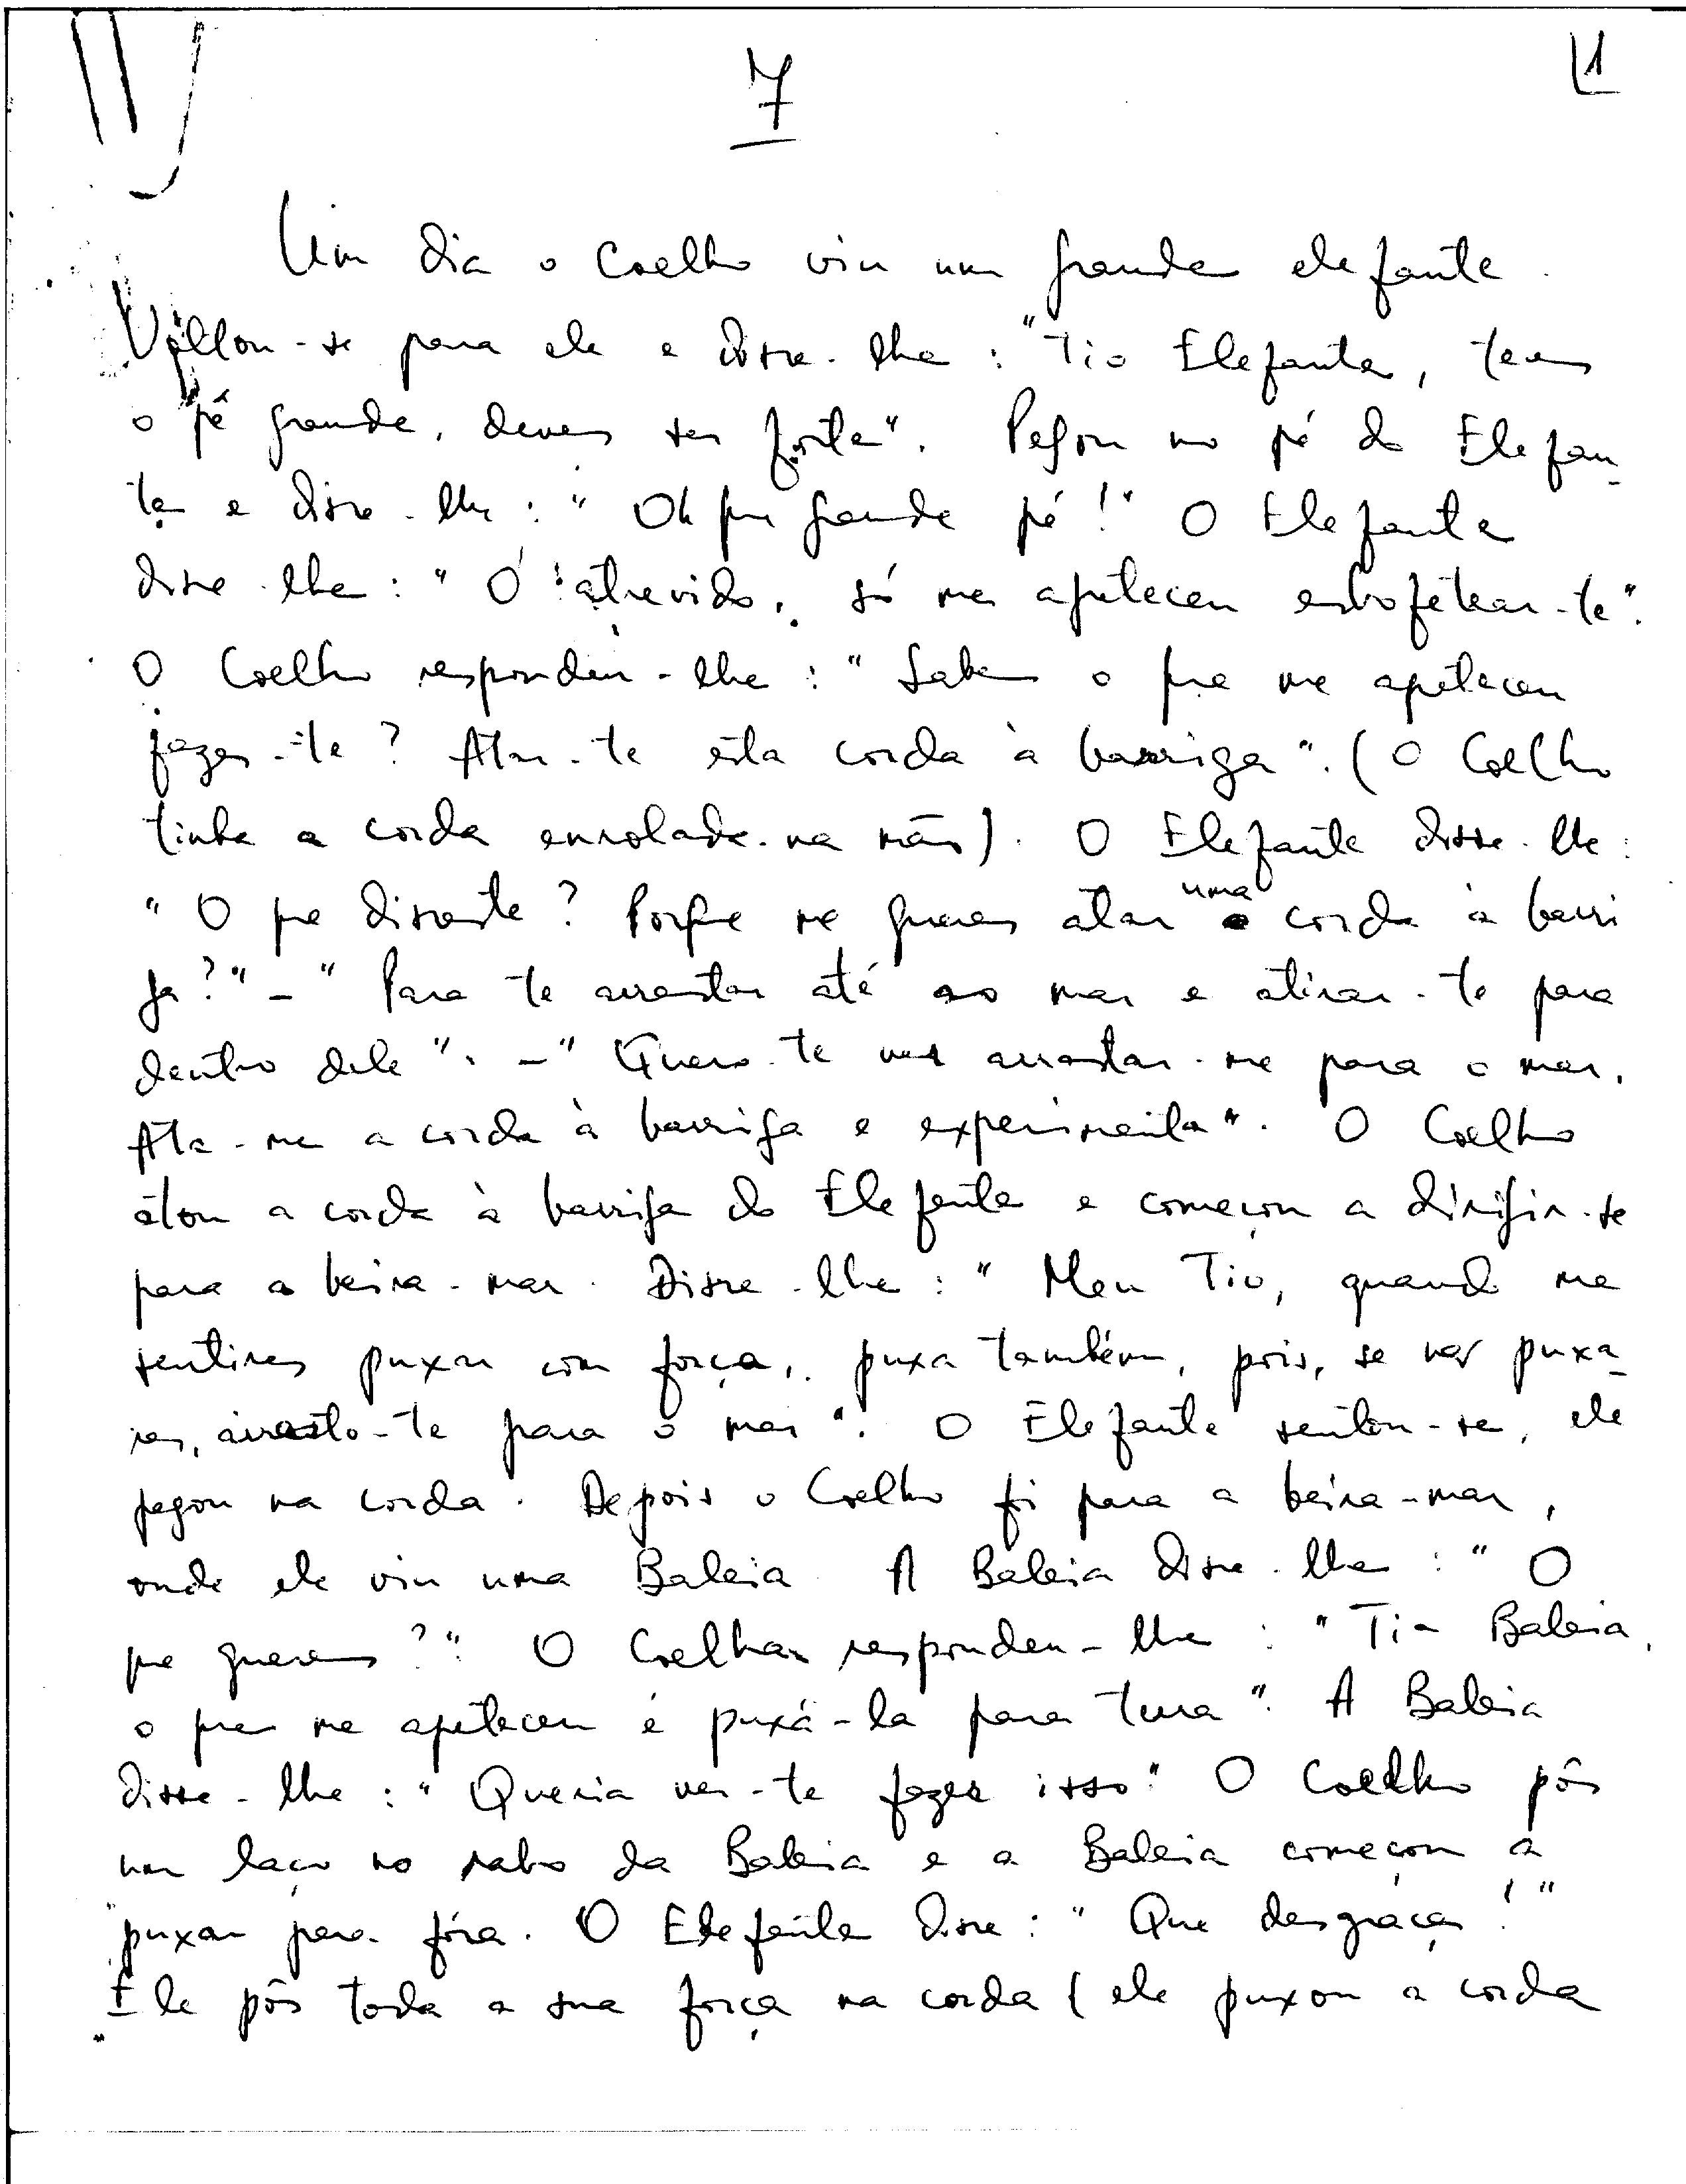 7
1
Um dia o Coelho viu um grande elefante.
Voltou-se para ele e disse-lhe: "Tio Elefante, tens
o pé grande, deves ser forte". Pegou no pé do Elefan-
te e disse-lhe: "Oh que grande pé!" O Elefante
disse-lhe: "Ó atrevido, só me apeteceu esbofetear-te".
O Coelho respondeu-lhe: "Sabes o que me apeteceu
fazer-te? Atar-te esta corda à barriga". (O Coelho
tinha a corda enrolada na mão). O Elefante disse-lhe:
"O que disseste? Porque me queres atar uma corda à barri
ga?" - "Para te arrastar até ao mar e atirar-te para
dentro dele". - "Quero-te ver arrastar-me para o mar.
Ata-me a corda à barriga e experimenta". O Coelho
atou a corda à barriga do Elefante e começou a dirigir-se
para a beira-mar. Disse-lhe: "Meu Tio, quando me
sentires puxar com força, puxa também, pois, se não puxa-
res, arrasto-te para o mar". O Elefante sentou-se, ele
pegou na corda. Depois o Coelho foi para a beira-mar,
onde ele viu uma Baleia. A Baleia disse-lhe: "O
que queres?" O Coelho respondeu-lhe: "Tia Baleia,
o que me apeteceu é puxá-la para terra". A Baleia
disse-lhe: "Queria ver-te fazer isso". O Coelho pôs
um laço no rabo da Baleia e a Baleia começou a
puxar para fora. O Elefante disse: "Que desgraça!"
Ele pôs toda a sua força na corda (ele puxou a corda